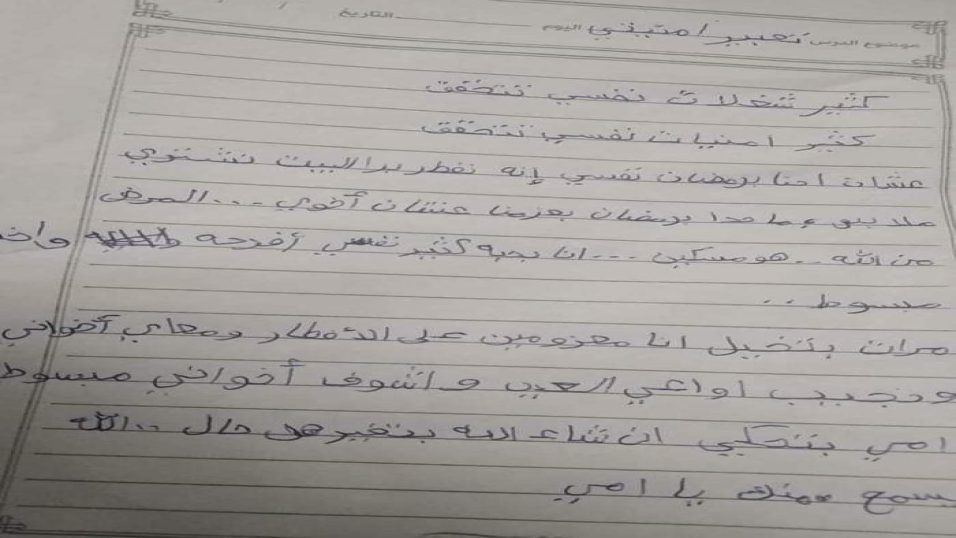 موضوع الدرس تعبير امنيتي اليوم التاريخ
كثير شغلات نفسي تتحقق
كثير امنيات نفسي تتحقق
عشان احنا برمضان نفسي إنه نفطر برا البيت نشتري
ملابس وما حدا برمضان بعزمنا عشان أخوي ... المرض
من الله .. هو مسكين ... انا بحبه كثير نفسي أفرحه واخ
مبسوط ..
مرات بتخيل انا معزومين على الأفطار ومعاي أخواني
ونجيب اواعي العيد واشوف أخواني مبسوط
امي بتحكي ان شاء الله بتغير هل حال .. الله
يسمع منك يا امي